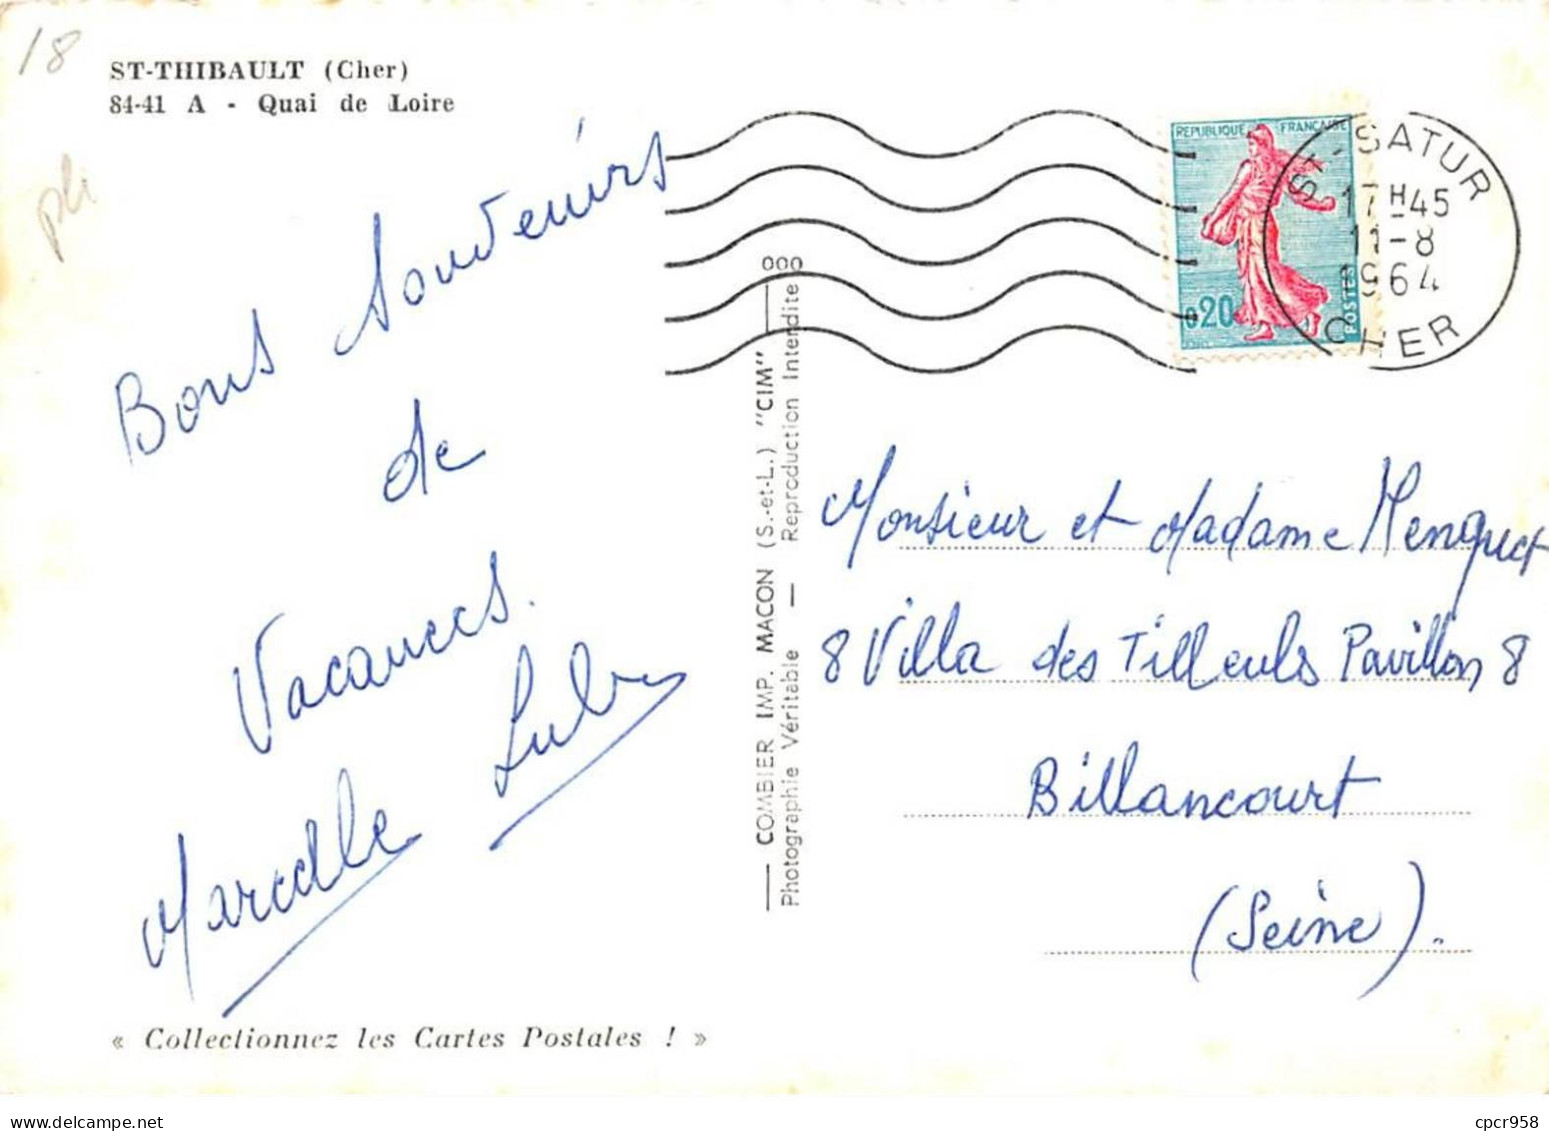 18
ST-THIBAULT (Cher)
84-41 A - Quai de Loire
Bons Souvenirs
de
Vacances.
Marcelle
« Collectionnez les Cartes Postales ! »
COMBIER IMP. MACON (S.-et-L.) "CIM"
Photographie Véritable — Reproduction Interdite
REPUBLIQUE FRANÇAISE
0,20
POSTES
ST-SATUR
17H45
11-8
1964
CHER
Monsieur et Madame
8 Villa des Tilleuls Pavillon 8
Billancourt
(Seine).
cpcr958